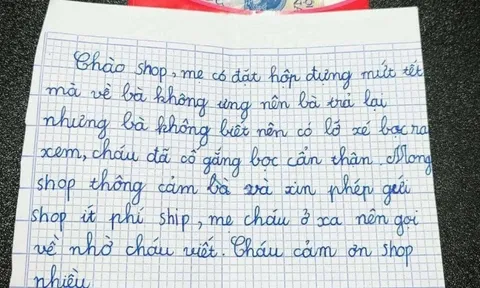 Chào shop, mẹ có đặt hộp đựng mứt tết
mà về bà không ưng nên bà trả lại
nhưng bà không biết nên có lỡ xé bọc ra
xem, cháu đã cố gắng bọc cẩn thân. Mong
shop thông cảm bà và xin phép gửi
shop ít phí ship, mẹ cháu ở xa nên gọi
về nhờ cháu viết. Cháu cảm ơn shop
nhiều